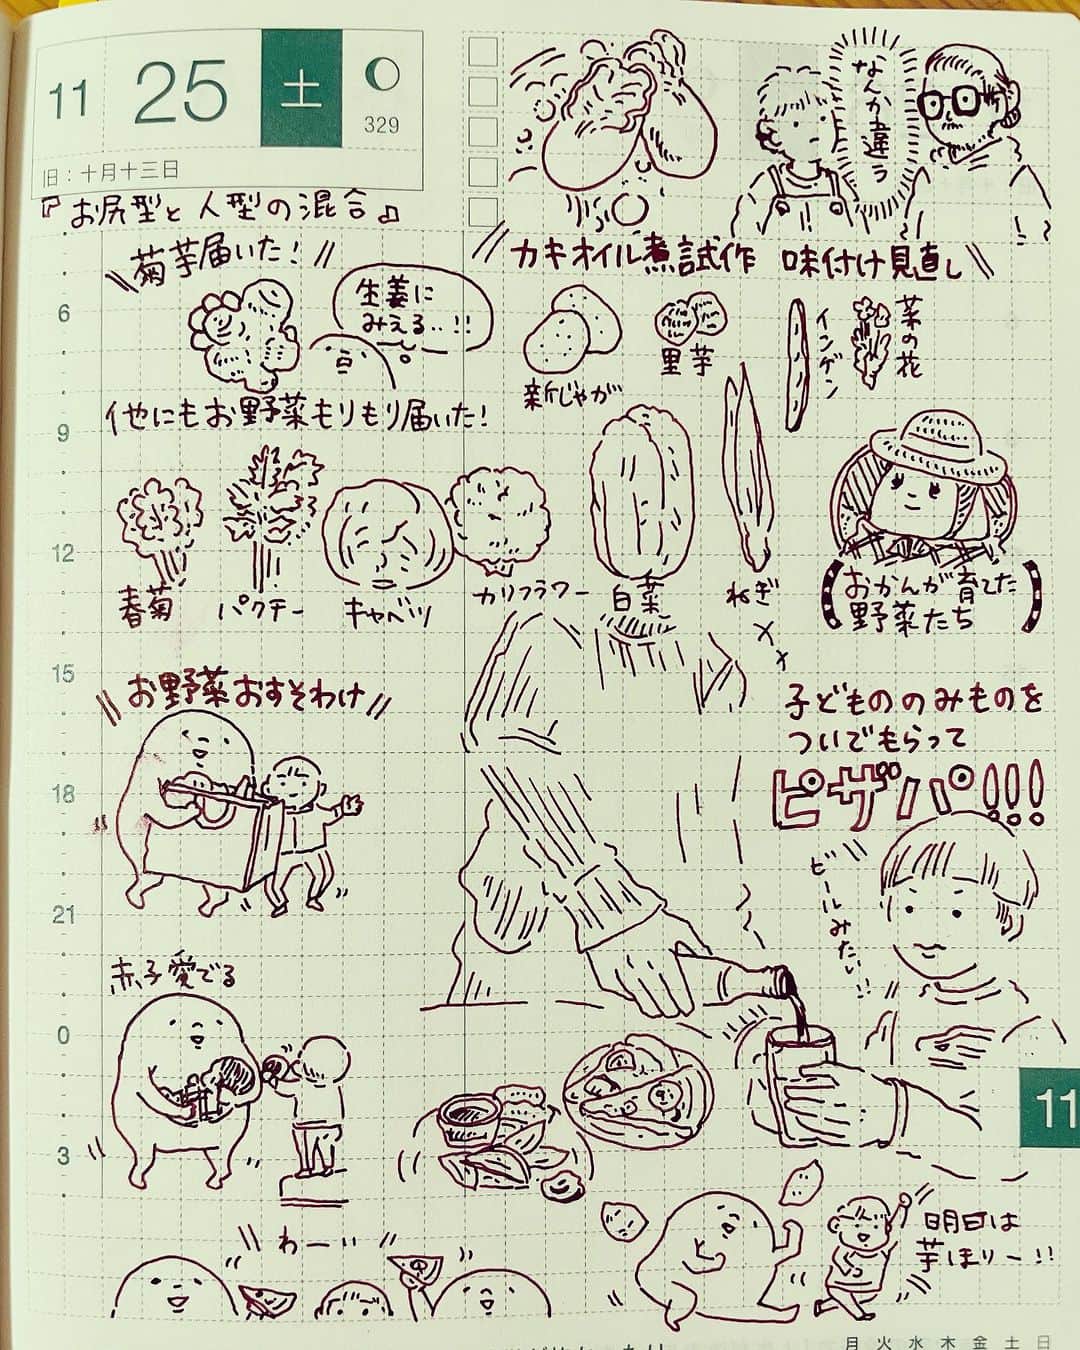 11
25
土
329
旧：十月十三日
『お尻型と人型の混合』
菊芋届いた！
生姜に
みえる‥!!
他にもお野菜もりもり届いた！
なんか違う
カキオイル煮試作 味付け見直し
新じゃが
里芋
インゲン
菜の花
春菊
パクチー
キャベツ
カリフラワー
白菜
ねぎ
おかんが育てた
野菜たち
お野菜おすそわけ
子どもののみものを
ついでもらって
ピザパ!!!
ビールみたい!!
赤子愛でる
わーい
明日は
芋ほりー!!
6
9
12
15
18
21
0
3
11
月 火 水 木 金 土 日